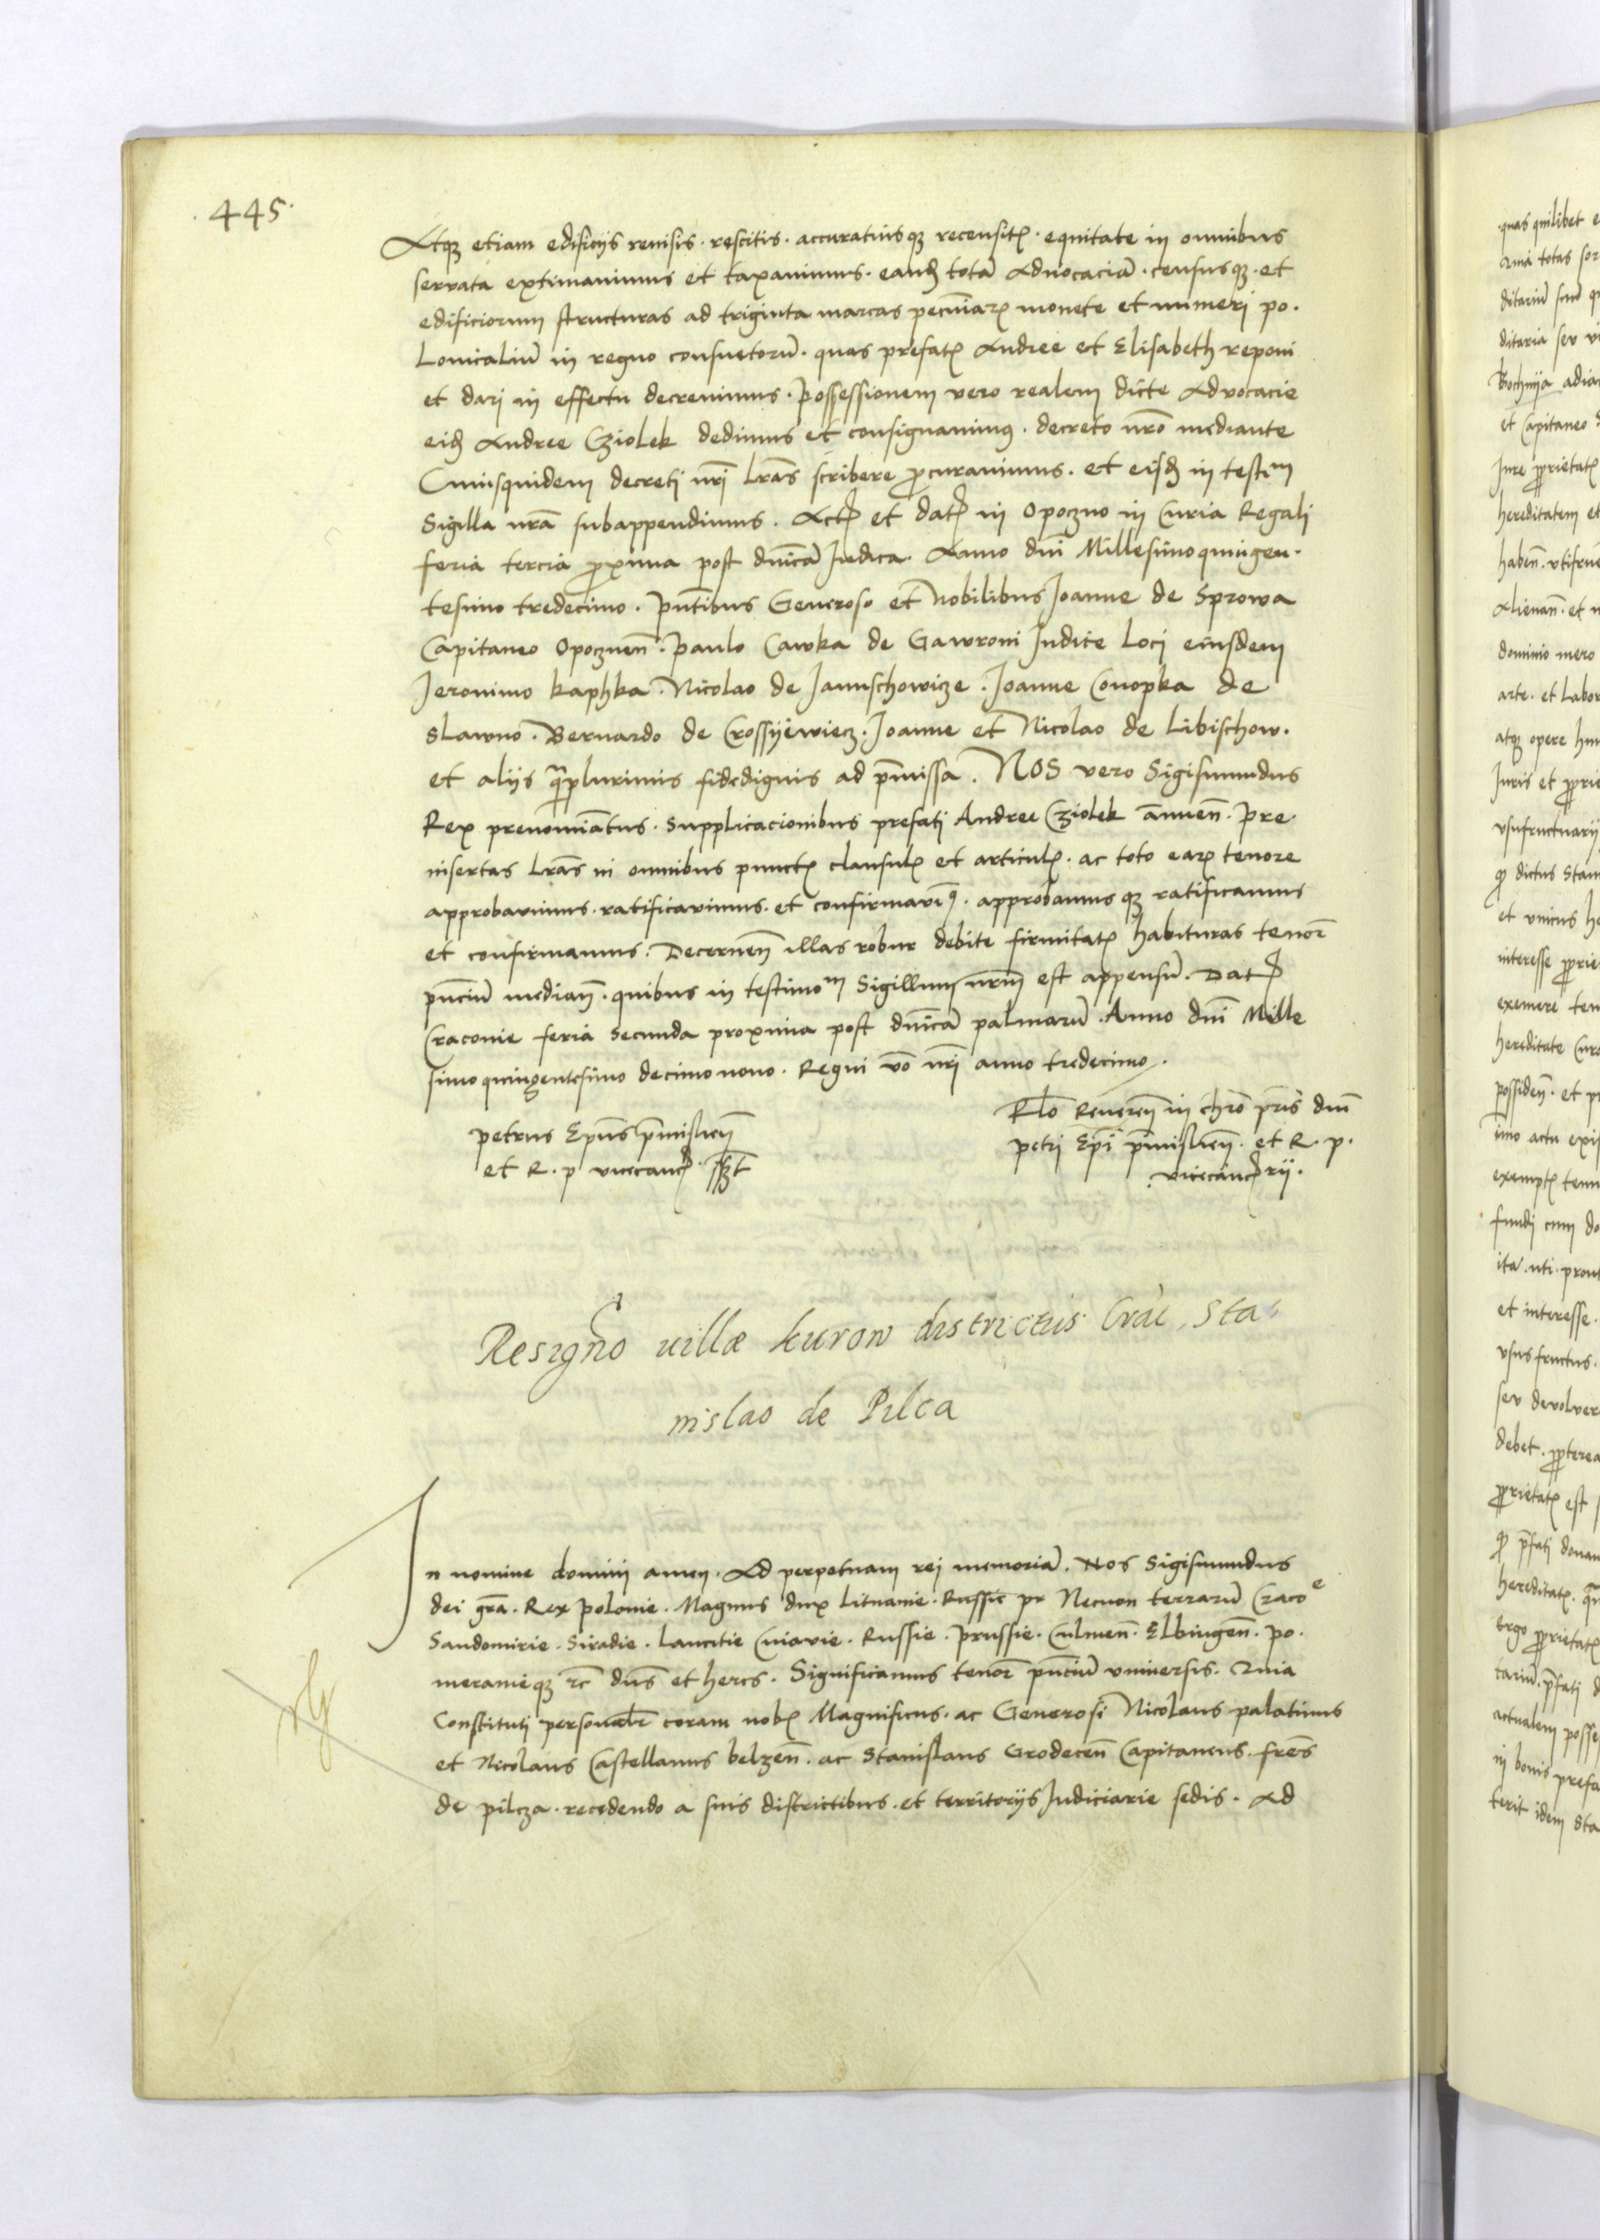 445.
Atqȝ etiam edificijs reuisis. rescitis. accuratiusqȝ recensitꝭ. equitate in omnibus
serrata extimauimus et taxauimus. eandꝫ totā Aduocaciā. censusqȝ. et
edificiorum structuras ad triginta marcas pecuniarꝝ monete et numeri po.
Lonicaliū in regno consuetorū. quas prefatꝭ Andree et Elisabeth reponi
et dari in effectu decreuimus. possessionem vero realem dicte Aduocacie
eidꝫ Andree Cziolek dedimus et consignauimꝰ. decreto nrō mediante
Cuiusquidem decreti nrī Lrās scribere ꝓcurauimus. et eisdꝫ in testim
Sigilla nrā subappendimus. Actꝫ et datꝫ in Opoczno in Curia Regali
feria tercia ꝓxima post dnīcā Iudica. Anno dnī Millesimoquingen.
tesimo tredecimo. pn̄tibus Generoso et Nobilibus Joanne de Sprowa
Capitaneo Opocznen̄. paulo Cawka de Gawroni Iudice Loci eiusdem
Jeronimo kaphka. Nicolao de Januschowicze. Joanne Conopka de
Slawno. Bernardo de Crossyewiecz. Joanne et Nicolao de Libischow.
et alijs q̄plurimis fidedignis ad p̄missa. NOS vero Sigismundus
Rex prenominatus. Supplicacionibus prefati Andree Cziolek annuen̄. pre.
insertas Lrās in omnibus punctꝭ clausulꝭ et articulꝭ. ac toto earꝝ tenore
approbauimus. ratificauimus. et confirmauiꝰ. approbamusqȝ ratificamus
et confirmamus. Decernen̄ illas robur debite firmitatꝭ habituras tenor̄
pn̄ciū median̄. quibus in testimom Sigillum nrm̄ est appensū. Datꝫ
Craconie feria Secunda proxima post dnīcā palmarū. Anno dnī Mille
simoquingentesimo decimonono. Regni vō nrī anno tredecimo.
petrus Epus p̄mislien̄
et R. p vicecancꝫ. sszt
Rlo Reueren̄ in chrō prīs dnī
petri Epī p̄mislien̄. et R. p.
vicecancꝫrij.
Resignō uillæ kuron districtus Crac, Sta=
nislao de Pilca
In nomine domini amen. Ad perpetuam rei memoriā. Nos Sigismundus
dei grā. Rex polonie. Magnus dux Lituanie. Russie pr Necnon terrarū Craco e
Sandomirie. Siradie. Lancitie Cuiavie. Russie. prussie. Culmen̄. Elbingen̄. po.
meranieqȝ rc̄ dns̄ et heres. Significamus tenor̄ pn̄ciū vniversis. Quia
Constituti personalr̄ coram nobꝭ Magnificus. ac Generosi Nicolaus palatinus
et Nicolaus Castellanus belzen̄. ac Stanislaus Grodecen̄ Capitaneus. frēs
de pilcza. recedendo a suis districtibus. et territorijs Judiciarie sedis. Ad
quas quilibet
ama totas sor
ditariū
ditaria seu
Bochnija adia
et Capitaneo
Jure ꝓprietatꝭ
hereditatem et
haben̄. vtifrue
Alienan̄. et
dominio mero
arte. et Labor
atqȝ opere hu
Juris et ꝓprie
vsufructuarij
ꝙ dictus Stan
et vnicus he
interesse ꝓprie
exemere ten
hereditate
possiden̄. et
imo actu exi
exemptꝭ
fundi cum do
ita. uti. prout
et interesse.
vsusfructus.
seu devolver
debet. ꝓpterea
ꝓprietatꝭ est
ꝙ p̄fati donan
hereditatꝭ.
ergo ꝓprietatꝭ
tariū. p̄fati d
actualem posse
in bonis prefa
terit idem Sta